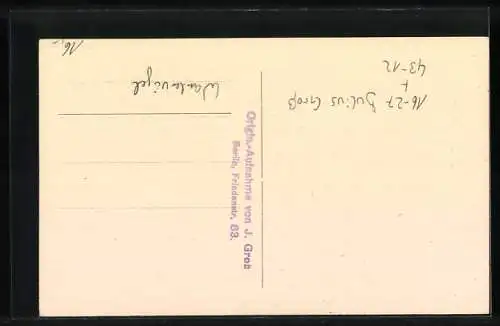 16,-
Wandervögel
Origin.-Aufnahme von J. Gros
Berlin, Friedenstr. 63.
16-27 Julius Groß
+
43-12